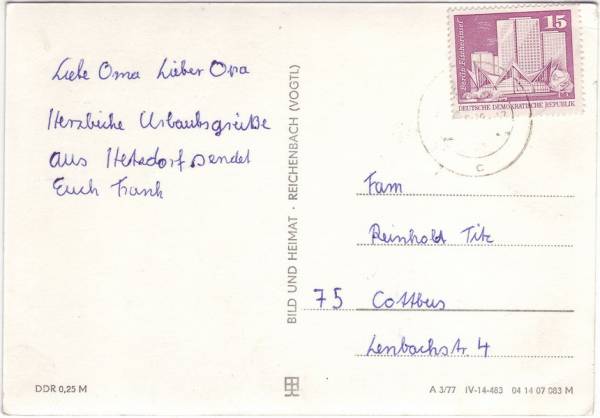 Liebe Oma Lieber Opa
Herzliche Urlaubsgrüße
aus Hetzdorf sendet
Euch Frank
BILD UND HEIMAT · REICHENBACH (VOGTL)
15
Berlin-Fischerinsel
DEUTSCHE DEMOKRATISCHE REPUBLIK
c
Fam
Reinhold Titz
75 Cottbus
Lenbachstr. 4
DDR 0,25 M
A 3/77 IV-14-483 04 14 07 083 M